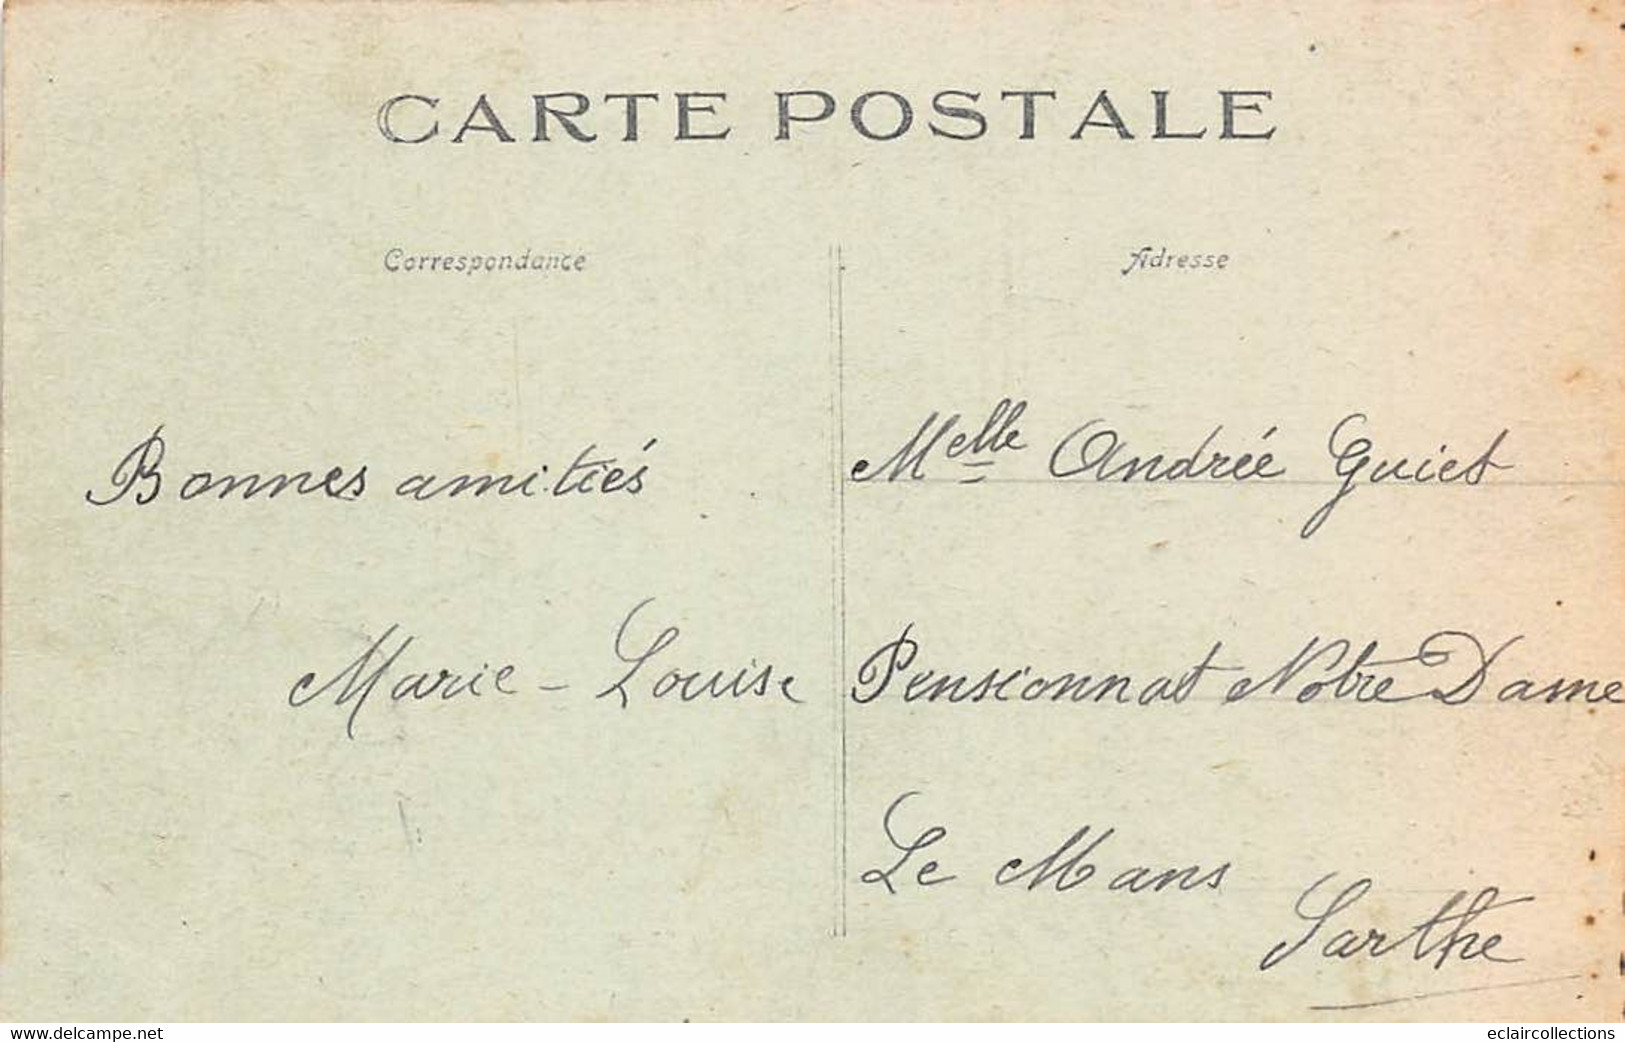 CARTE POSTALE
Correspondance
Adresse
Bonnes amitiés
Marie-Louise
Melle Andrée Guiet
Pensionnat Notre Dame
Le Mans
Sarthe
www.delcampe.net
eclaircollections